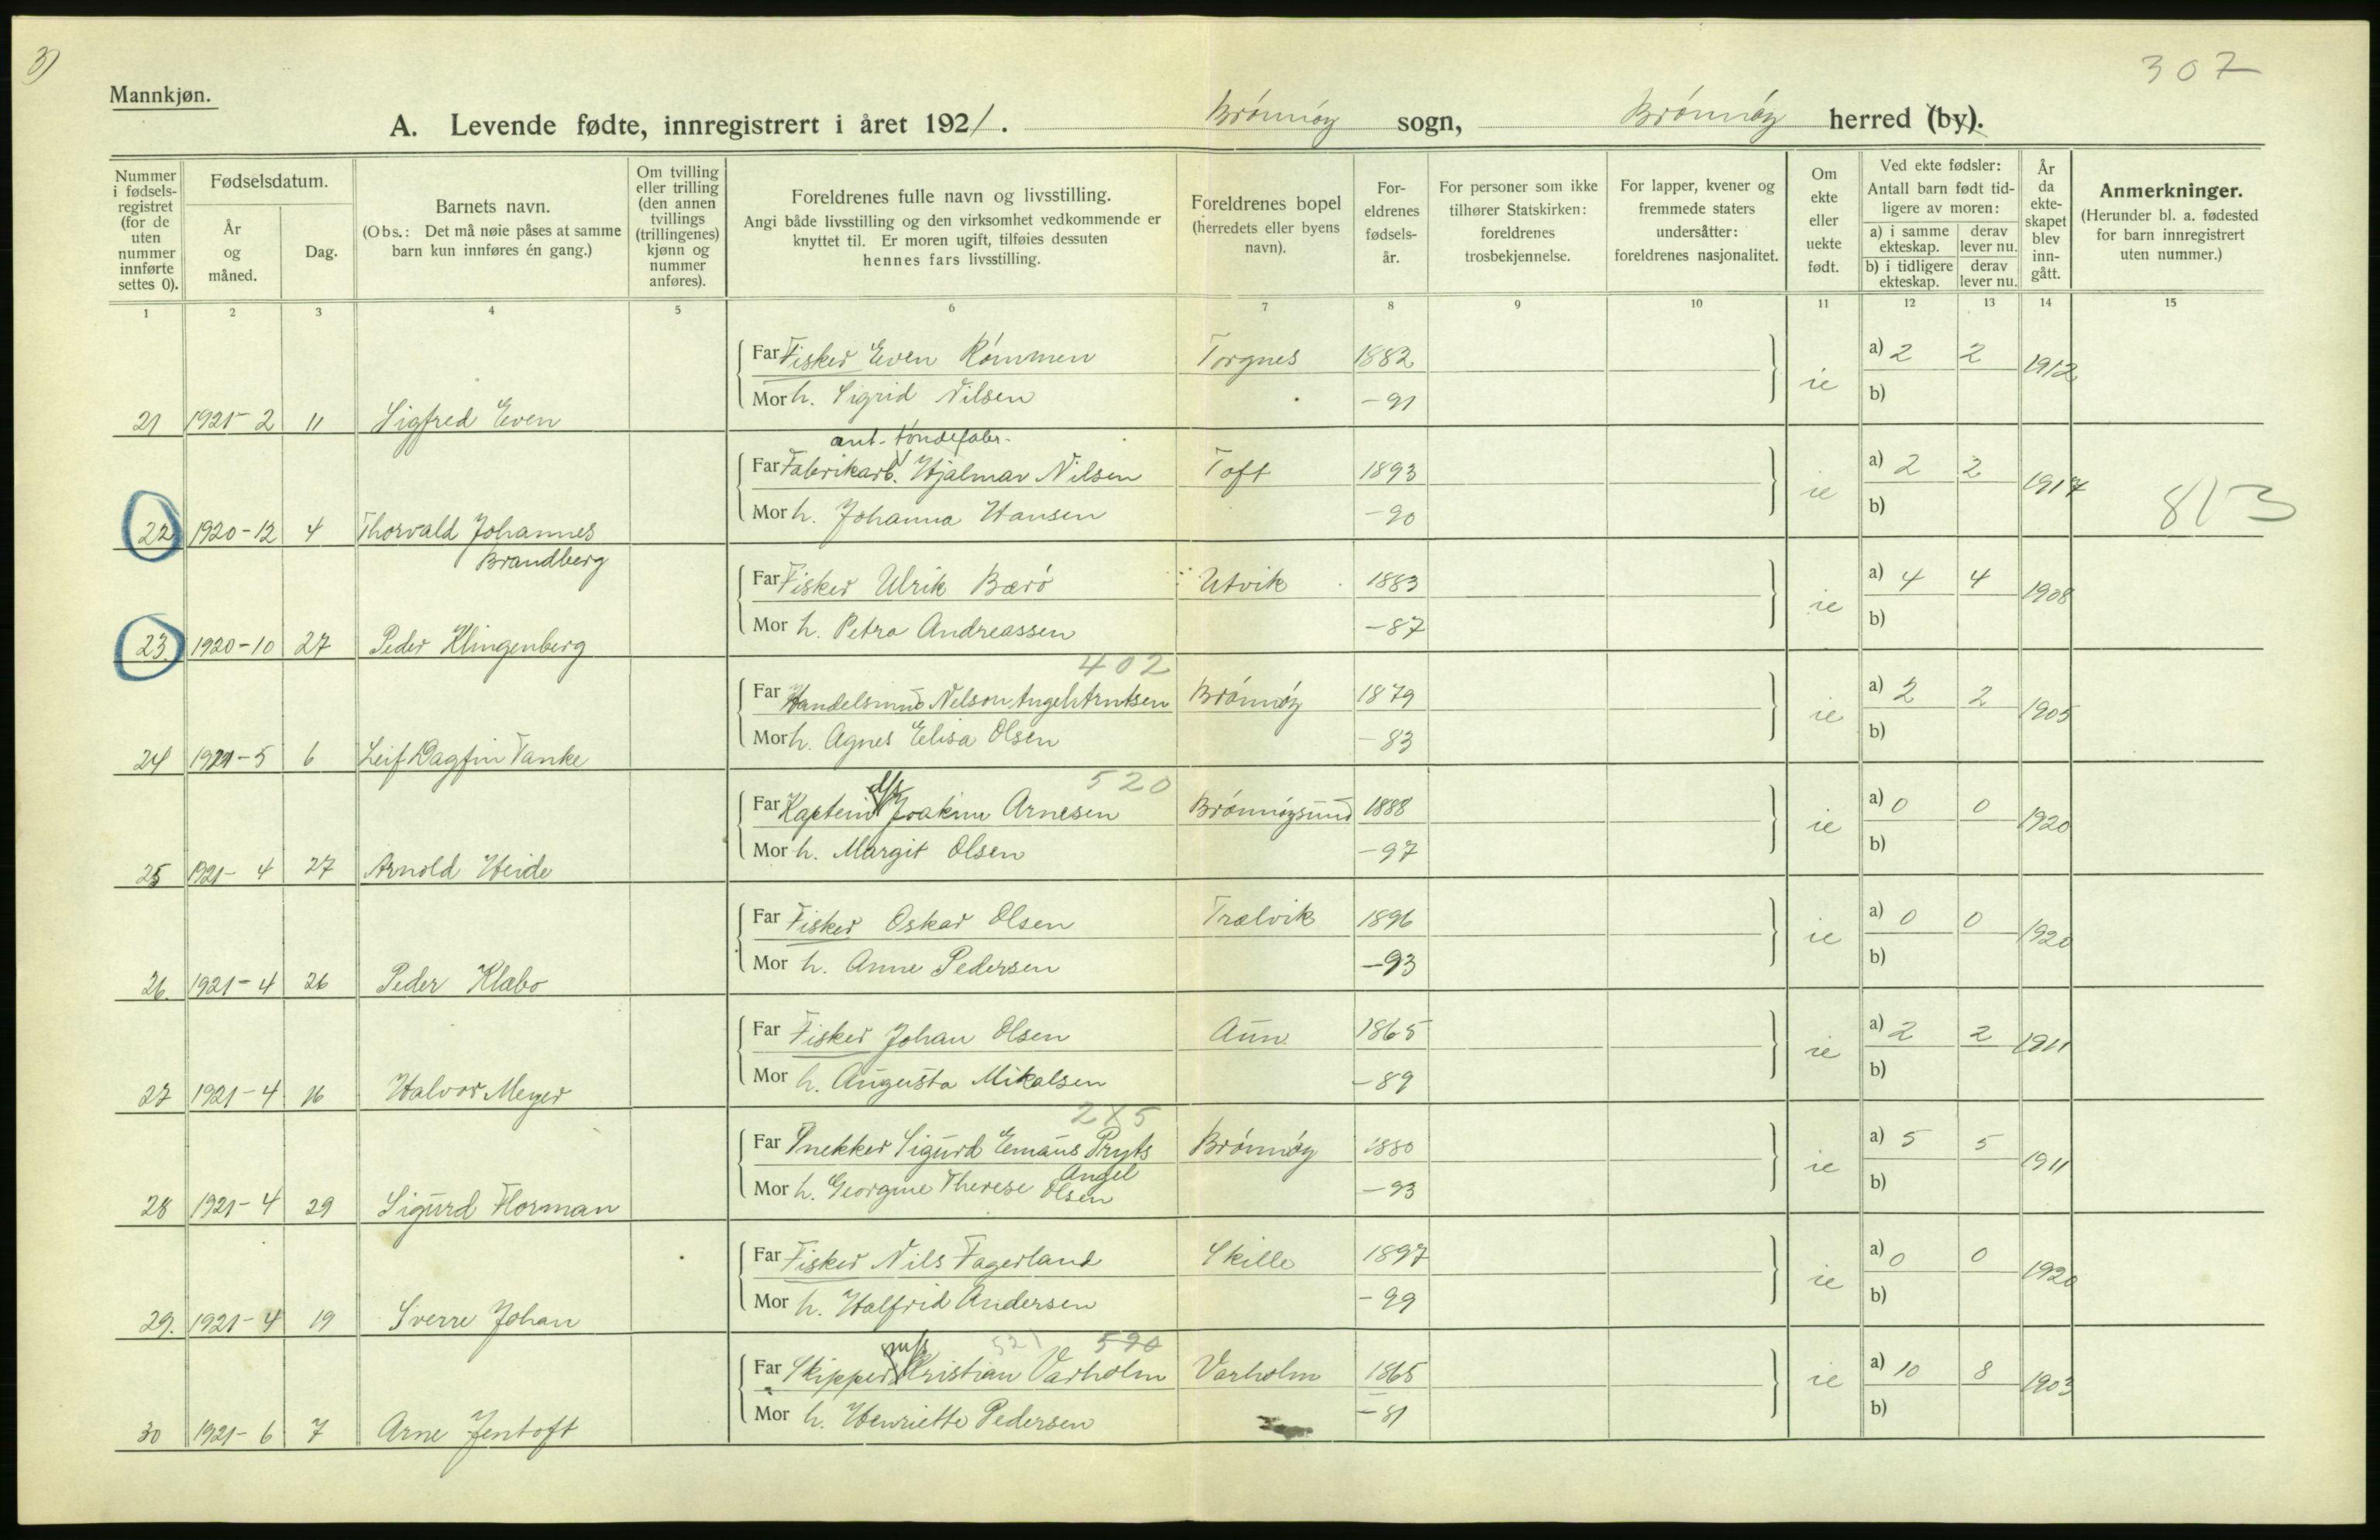 3)
307
Mannkjøn.
A. Levende fødte, innregistrert i året 1921. Brónnóy sogn, Brónnóy herred (by).
Nummer i fødsels-registret (for de uten nummer innførte settes 0).
Fødselsdatum.
År og måned.
Dag.
Barnets navn.
(Obs.: Det må nøie påses at samme barn kun innføres én gang.)
Om tvilling eller trilling (den annen tvillings (trillingenes) kjønn og nummer anføres).
Foreldrenes fulle navn og livsstilling.
Angi både livsstilling og den virksomhet vedkommende er knyttet til. Er moren ugift, tilføies dessuten hennes fars livsstilling.
Foreldrenes bopel (herredets eller byens navn).
For-eldrenes fødsels-år.
For personer som ikke tilhører Statskirken: foreldrenes trosbekjennelse.
For lapper, kvener og fremmede staters undersåtter: foreldrenes nasjonalitet.
Om ekte eller uekte født.
Ved ekte fødsler: Antall barn født tid-ligere av moren:
a) i samme ekteskap. derav lever nu.
b) i tidligere ekteskap. derav lever nu.
År da ekte-skapet blev inn-gått.
Anmerkninger.
(Herunder bl. a. fødested for barn innregistrert uten nummer.)
1 2 3 4 5 6 7 8 9 10 11 12 13 14 15
Far Fisker Even Rómmen Torgnes 1882 a) 2 2
Mor h. Sigrid Nilsen -91 ie b) 1912
21 1921-2 11 Sigfred Even
ant. tóndefabr.
Far Fabrikarb. Hjalmar Nilsen Toft 1893 a) 2 2
Mor h. Johanna Hansen -90 ie b) 1917 813
22 1920-12 4 Thorvald Johannes
Brandberg
Far Fisker Ulrik Bæró Utvik 1883 a) 4 4
Mor h. Petra Andreassen -87 ie b) 1908
23. 1920-10 27 Peder Klingenberg
402
Far Handelsmnd Nelson Angel Arntsen Brónnóy 1879 a) 2 2
Mor h. Agnes Elisa Olsen -83 ie b) 1905
24 1921-5 6 Leif Dagfin Tanke
520
d/s
Far Kaptein Joakim Arnesen Brónnóysund 1888 a) 0 0
Mor h. Margit Olsen -97 ie b) 1920
25 1921-4 27 Arnold Heide
Far Fisker Oskar Olsen Trælvik 1896 a) 0 0
Mor h. Anne Pedersen -93 ie b) 1920
26. 1921-4 26 Peder Klæbo
Far Fisker Johan Olsen Aun 1865 a) 2 2
Mor h. Augusta Mikalsen -89 ie b) 1911
27 1921-4 16 Halvor Meyer
285
Far Snekker Sigurd Emaus Pryts Brónnóy 1880 a) 5 5
Angel
Mor h. Georgine Therese Olsen -93 ie b) 1911
28 1921-4 29 Sigurd Florman
Far Fisker Nils Fagerland Skille 1897 a) 0 0
Mor h. Halfrid Andersen -99 ie b) 1920
29. 1921-4 19 Sverre Johan
521 590
m/k
Far Skipper Kristian Varholm Varholm 1865 a) 10 8
Mor h. Henriette Pedersen -81 ie b) 1903
30 1921-6 7 Arne Jentoft